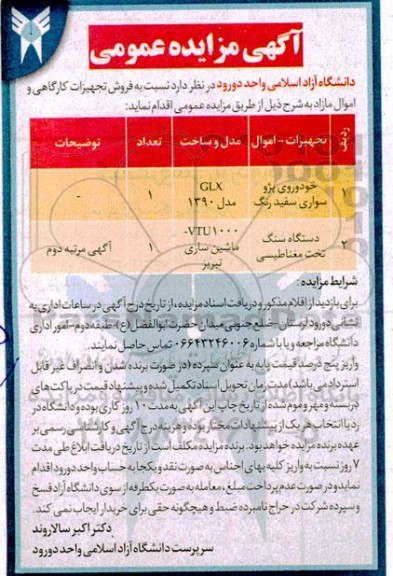 آگهی مزایده عمومی
دانشگاه آزاد اسلامی واحد دورود در نظر دارد نسبت به فروش تجهیزات کارگاهی و
اموال مازاد به شرح ذیل از طریق مزایده عمومی اقدام نماید:
ردیف تجهیزات - اموال مدل و ساخت تعداد توضیحات
۱ خودروی پژو سواری سفید رنگ GLX مدل ۱۳۹۰ ۱ -
۲ دستگاه سنگ تخت مغناطیسی VTU۱۰۰۰- ماشین سازی تبریز ۱ آگهی مرتبه دوم
شرایط مزایده :
برای بازدید از اقلام مذکور و دریافت اسناد مزایده، از تاریخ درج آگهی در ساعات اداری به
نشانی دورود لرستان - ضلع جنوبی میدان حضرت ابوالفضل (ع) - طبقه دوم - امور اداری
دانشگاه مراجعه و یا با شماره ۰۶۶۴۳۲۴۶۰۰۶ تماس حاصل نمایند.
واریز پنج درصد قیمت پایه به عنوان سپرده (در صورت برنده شدن و انصراف غیر قابل
استرداد می باشد) مدت زمان تحویل اسناد تکمیل شده و پیشنهاد قیمت در پاکت های
دربسته و مهر و موم شده از تاریخ چاپ این آگهی به مدت ۱۰ روز کاری بوده و دانشگاه در
رد یا انتخاب هر یک از پیشنهادات مختار بوده و هزینه درج آگهی و کارشناسی رسمی بر
عهده برنده مزایده خواهد بود. برنده مزایده مکلف است از تاریخ دریافت ابلاغ طی مدت
۷ روز نسبت به واریز کلیه بهای اجناس به صورت نقد و یکجا به حساب واحد دورود اقدام
نماید و در صورت عدم پرداخت مبلغ، معامله به صورت یکطرفه از سوی دانشگاه آزاد فسخ
و سپرده شرکت در حراج نامبرده ضبط و هیچگونه حقی برای خریدار ایجاب نمی کند.
دکتر اکبر سالاروند
سرپرست دانشگاه آزاد اسلامی واحد دورود